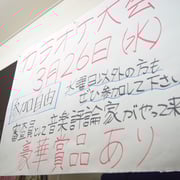 カラオケ大会
3月26日(水)
自由
水曜日以外の方も
ぜひ参加して下さい
審査員として音楽評論家がやって来
豪華賞品あり